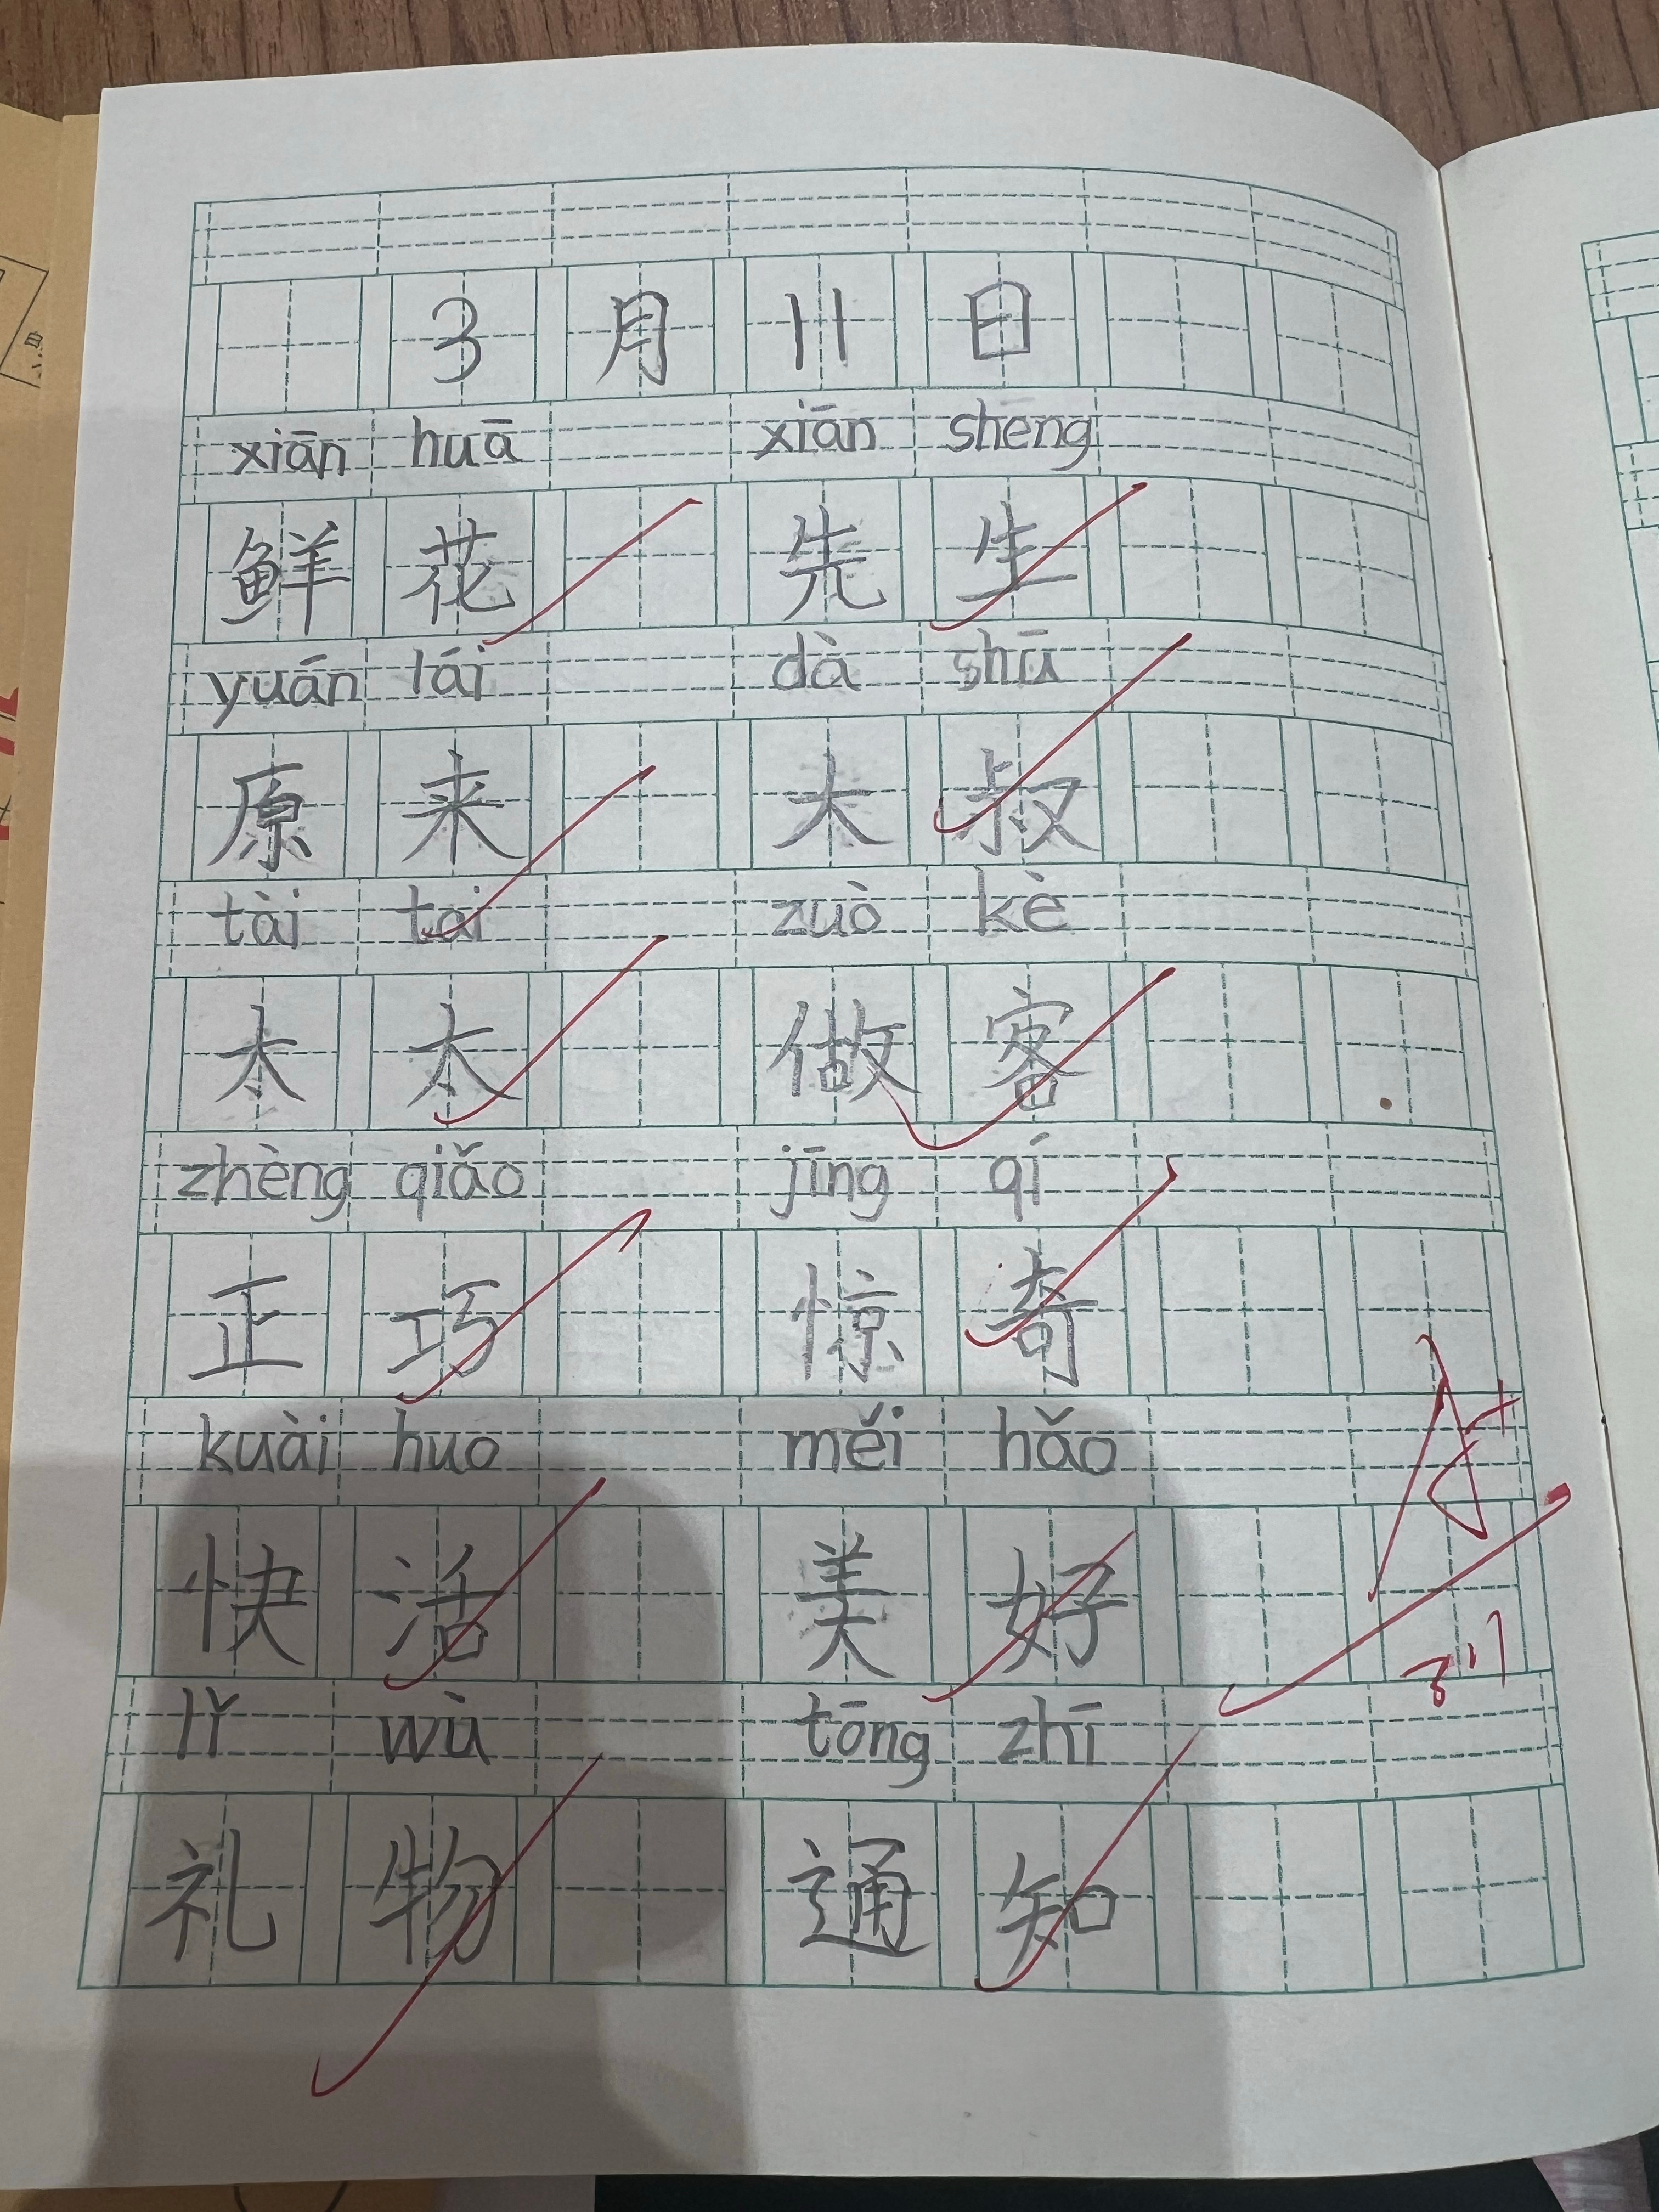 3月11日
xiān huā xiān shēng
鲜花 先生
yuán lái dà shū
原来 大叔
tài tai zuò kè
太太 做客
zhèng qiǎo jīng qí
正巧 惊奇
kuài huo měi hǎo
快活 美好
lǐ wù tōng zhī
礼物 通知
3.11